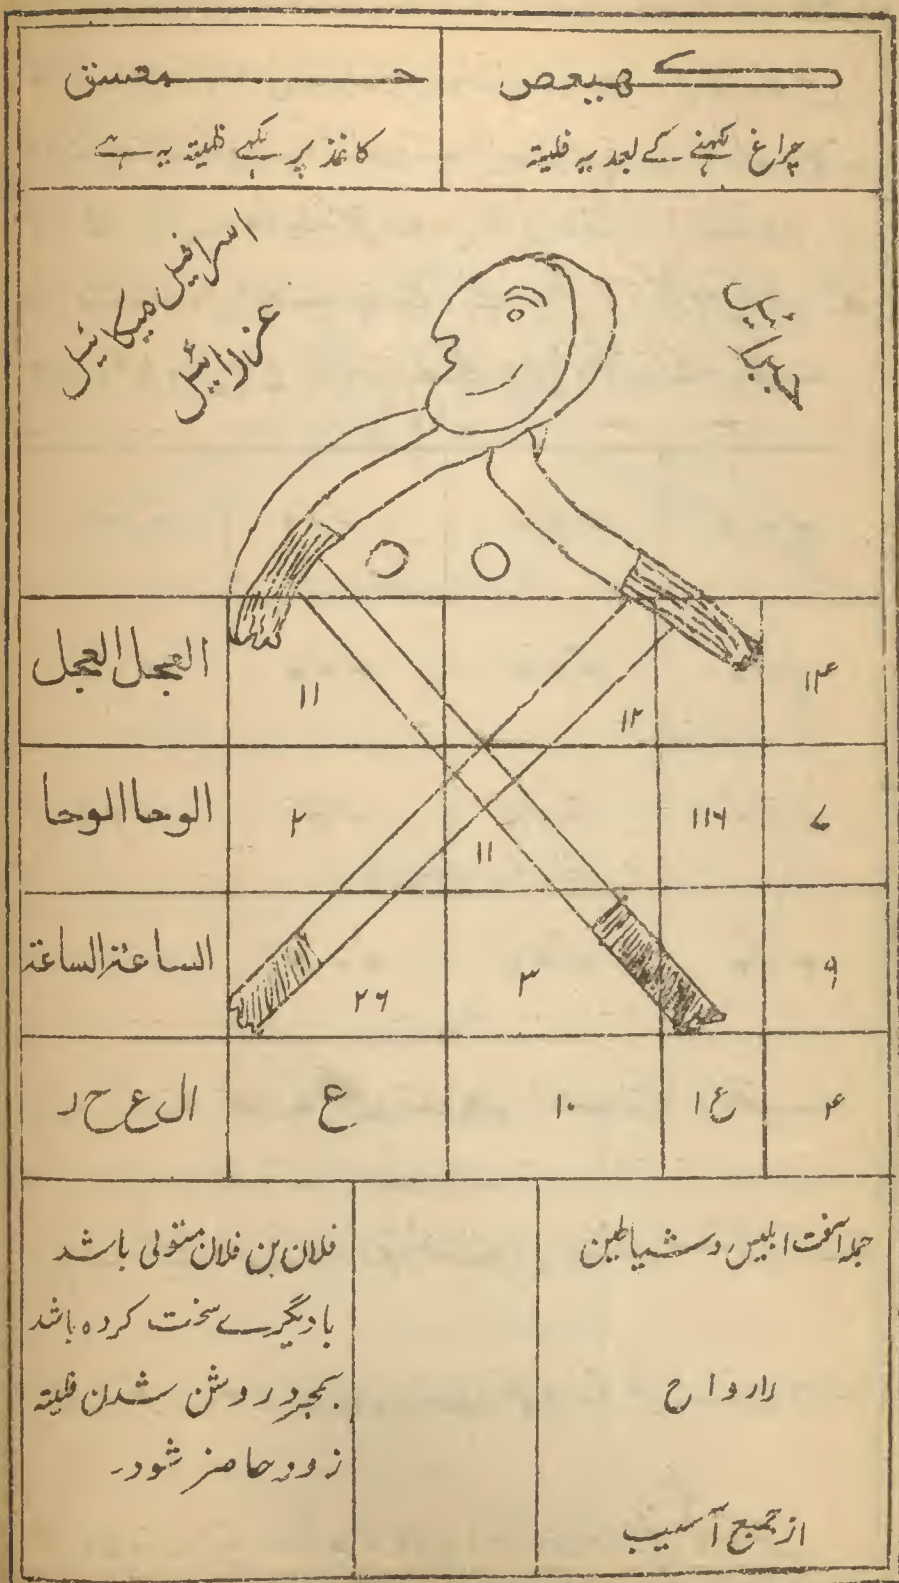 کھیعص
حمعسق
چراغ لکہنے کے بعد یہ فلیتہ
کاغذ پر لکہے فلیتہ یہ ہے
جبرائیل
اسرافیل میکائیل
عزرائیل
۱۴ ۱۲ ۱۱ العجل العجل
۷ ۱۱۶ ۱۱ ۲ الوحا الوحا
۹ ۳ ۲۶ الساعتہ الساعتہ
۴ ع ا ۱۰ ع ال ع ح د
جملہ آفت ابلیس و شیاطین
را ر و ا ح
از جمیع آسیب
فلان بن فلان متولی باشد
بادیگرے سخت کردہ باشد
بمجرد روشن شدن فلیتہ
زود حاضر شود۔